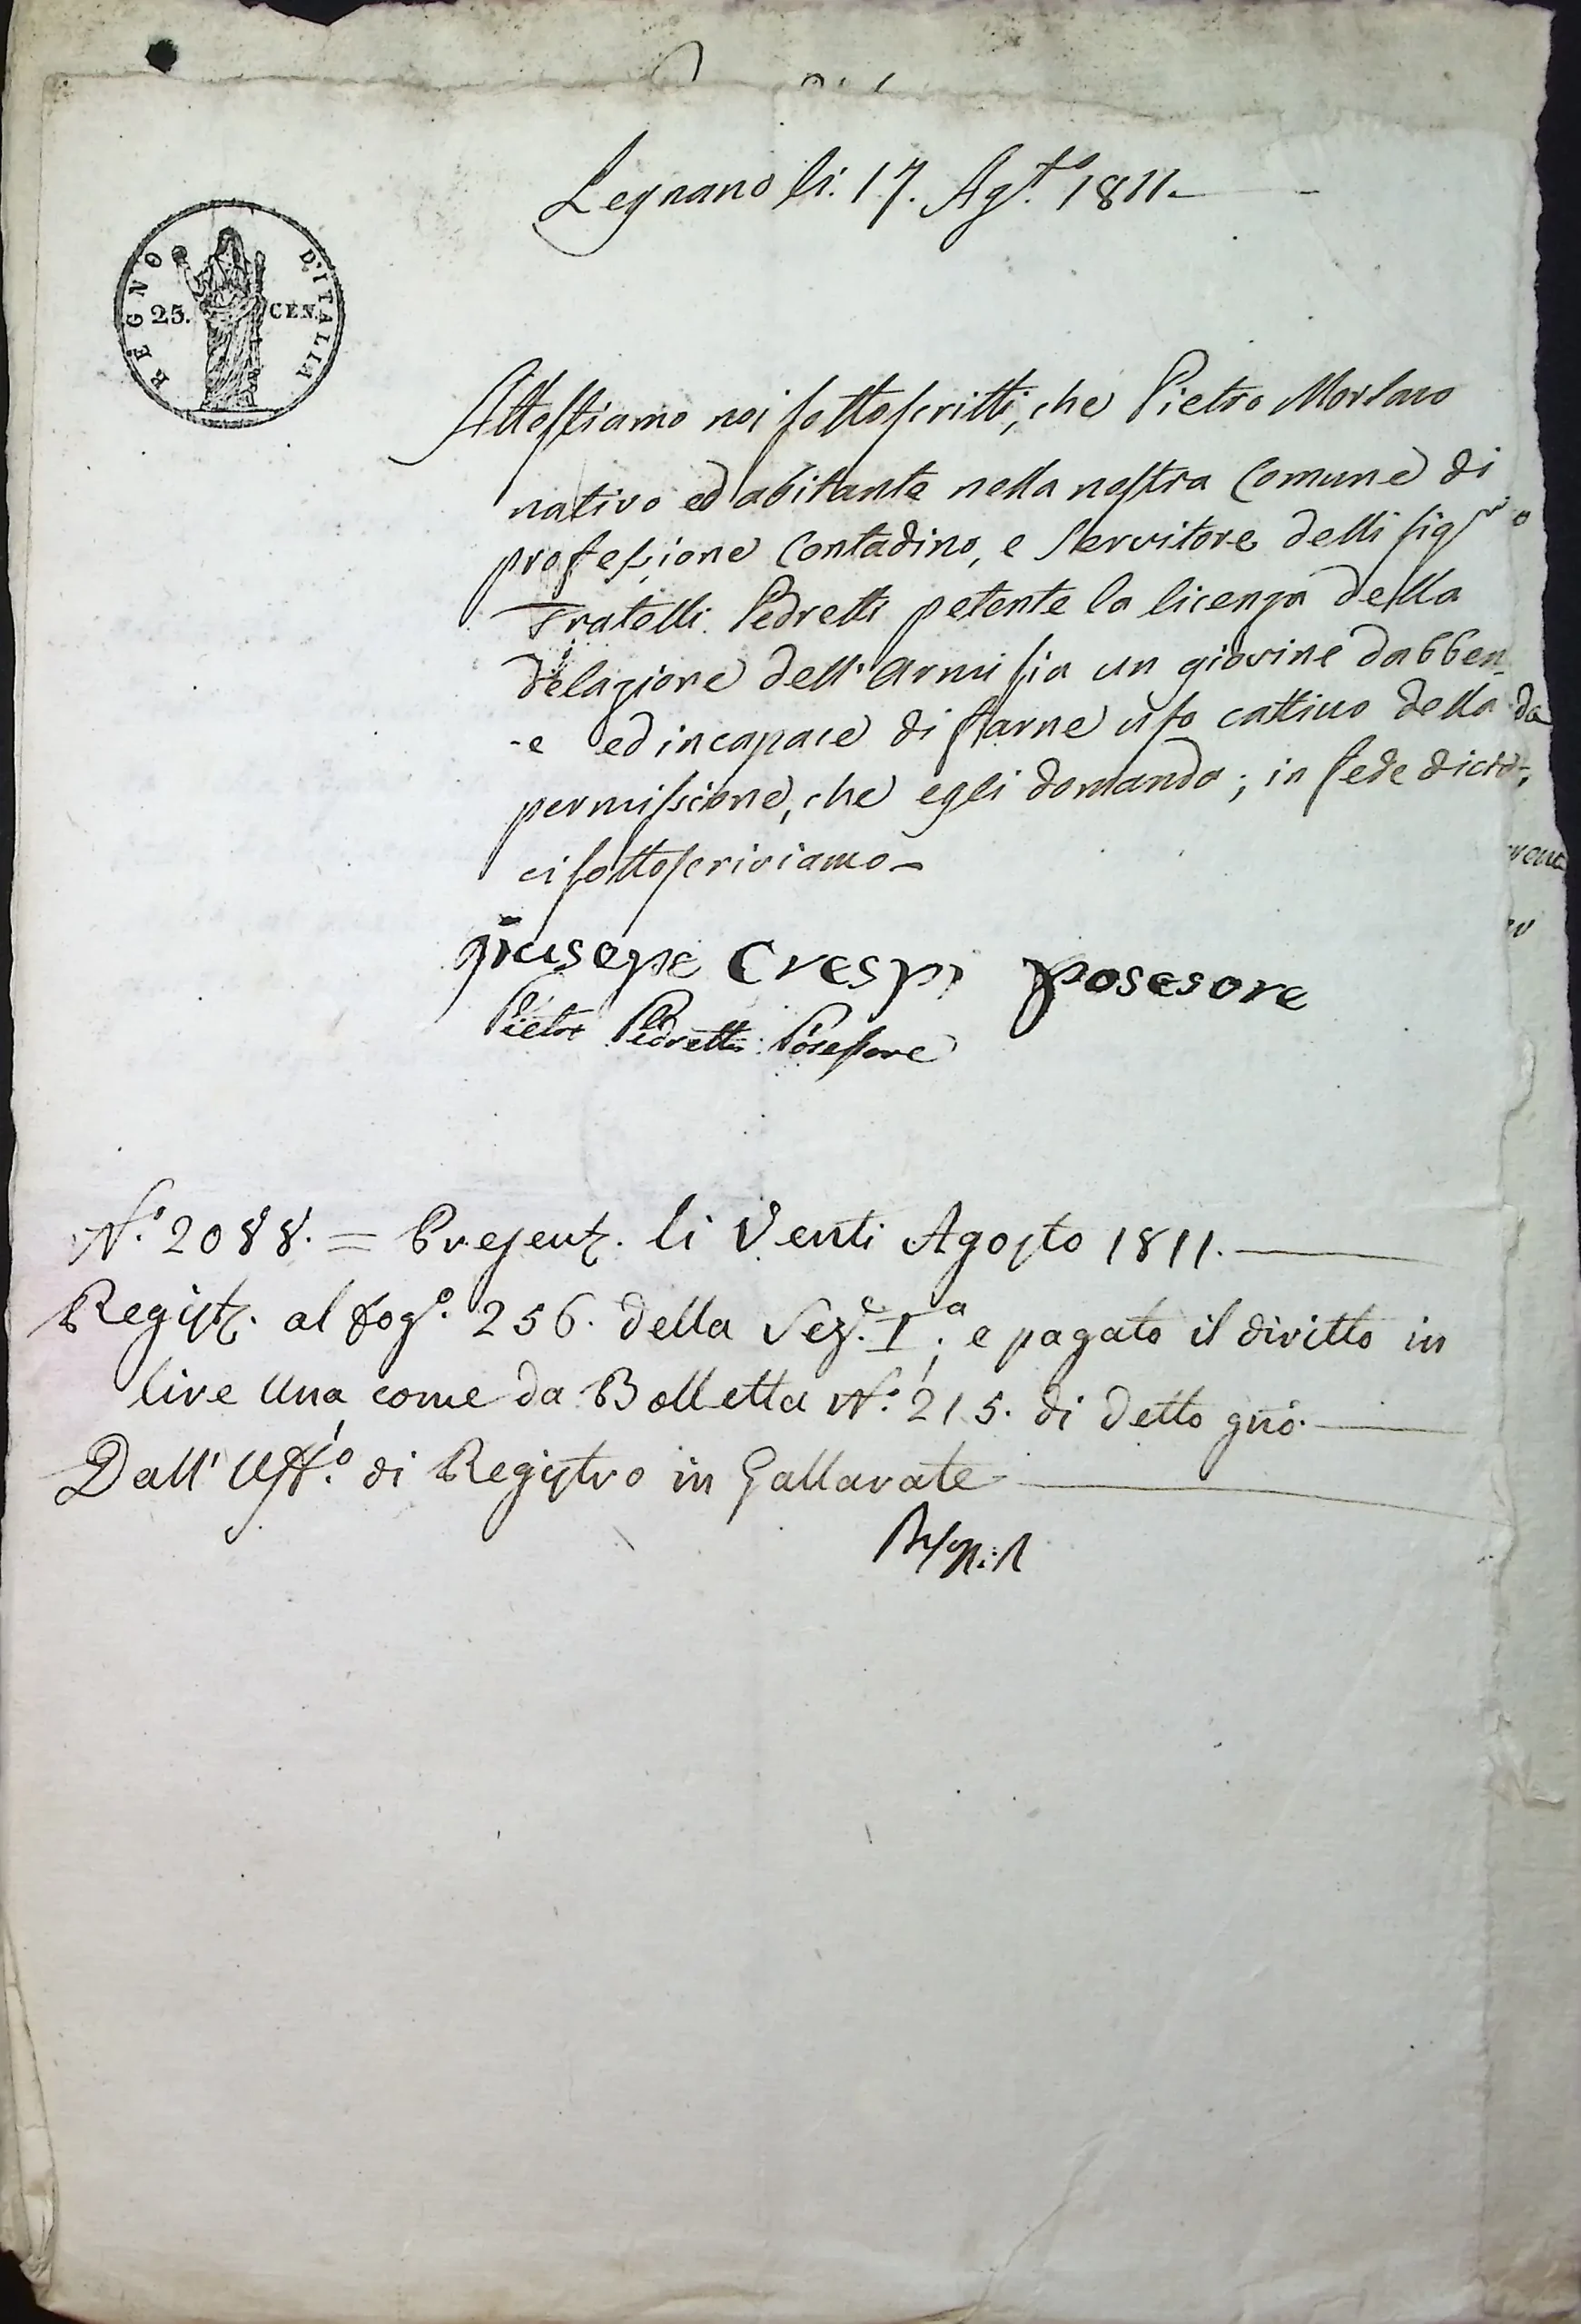 Legnano li. 17. Ag.to 1811.
REGNO D'ITALIA
25. CEN.
Attestiamo noi sottoscritti, che Pietro Morlaco
nativo ed abitante nella nostra Comune di
professione Contadino, e Servitore delli sig.ri
Fratelli Pedretti petente la licenza della
delazione dell'Armi sia un giovine dabben
-e ed incapace di farne uso cattivo della
permissione, che egli domanda; in fede di ciò
ci sottoscriviamo
Giusepe Crespi posesore
Pietro Pedretti Posessore
N.o 2088. = Presentz. li Venti Agosto 1811.
Registz. al fog.o 256. della Sez.e I.a e pagato il diritto in
lire Una come da Bolletta N.o 215. di detto gno.
Dall'Uff.o di Registro in Gallarate